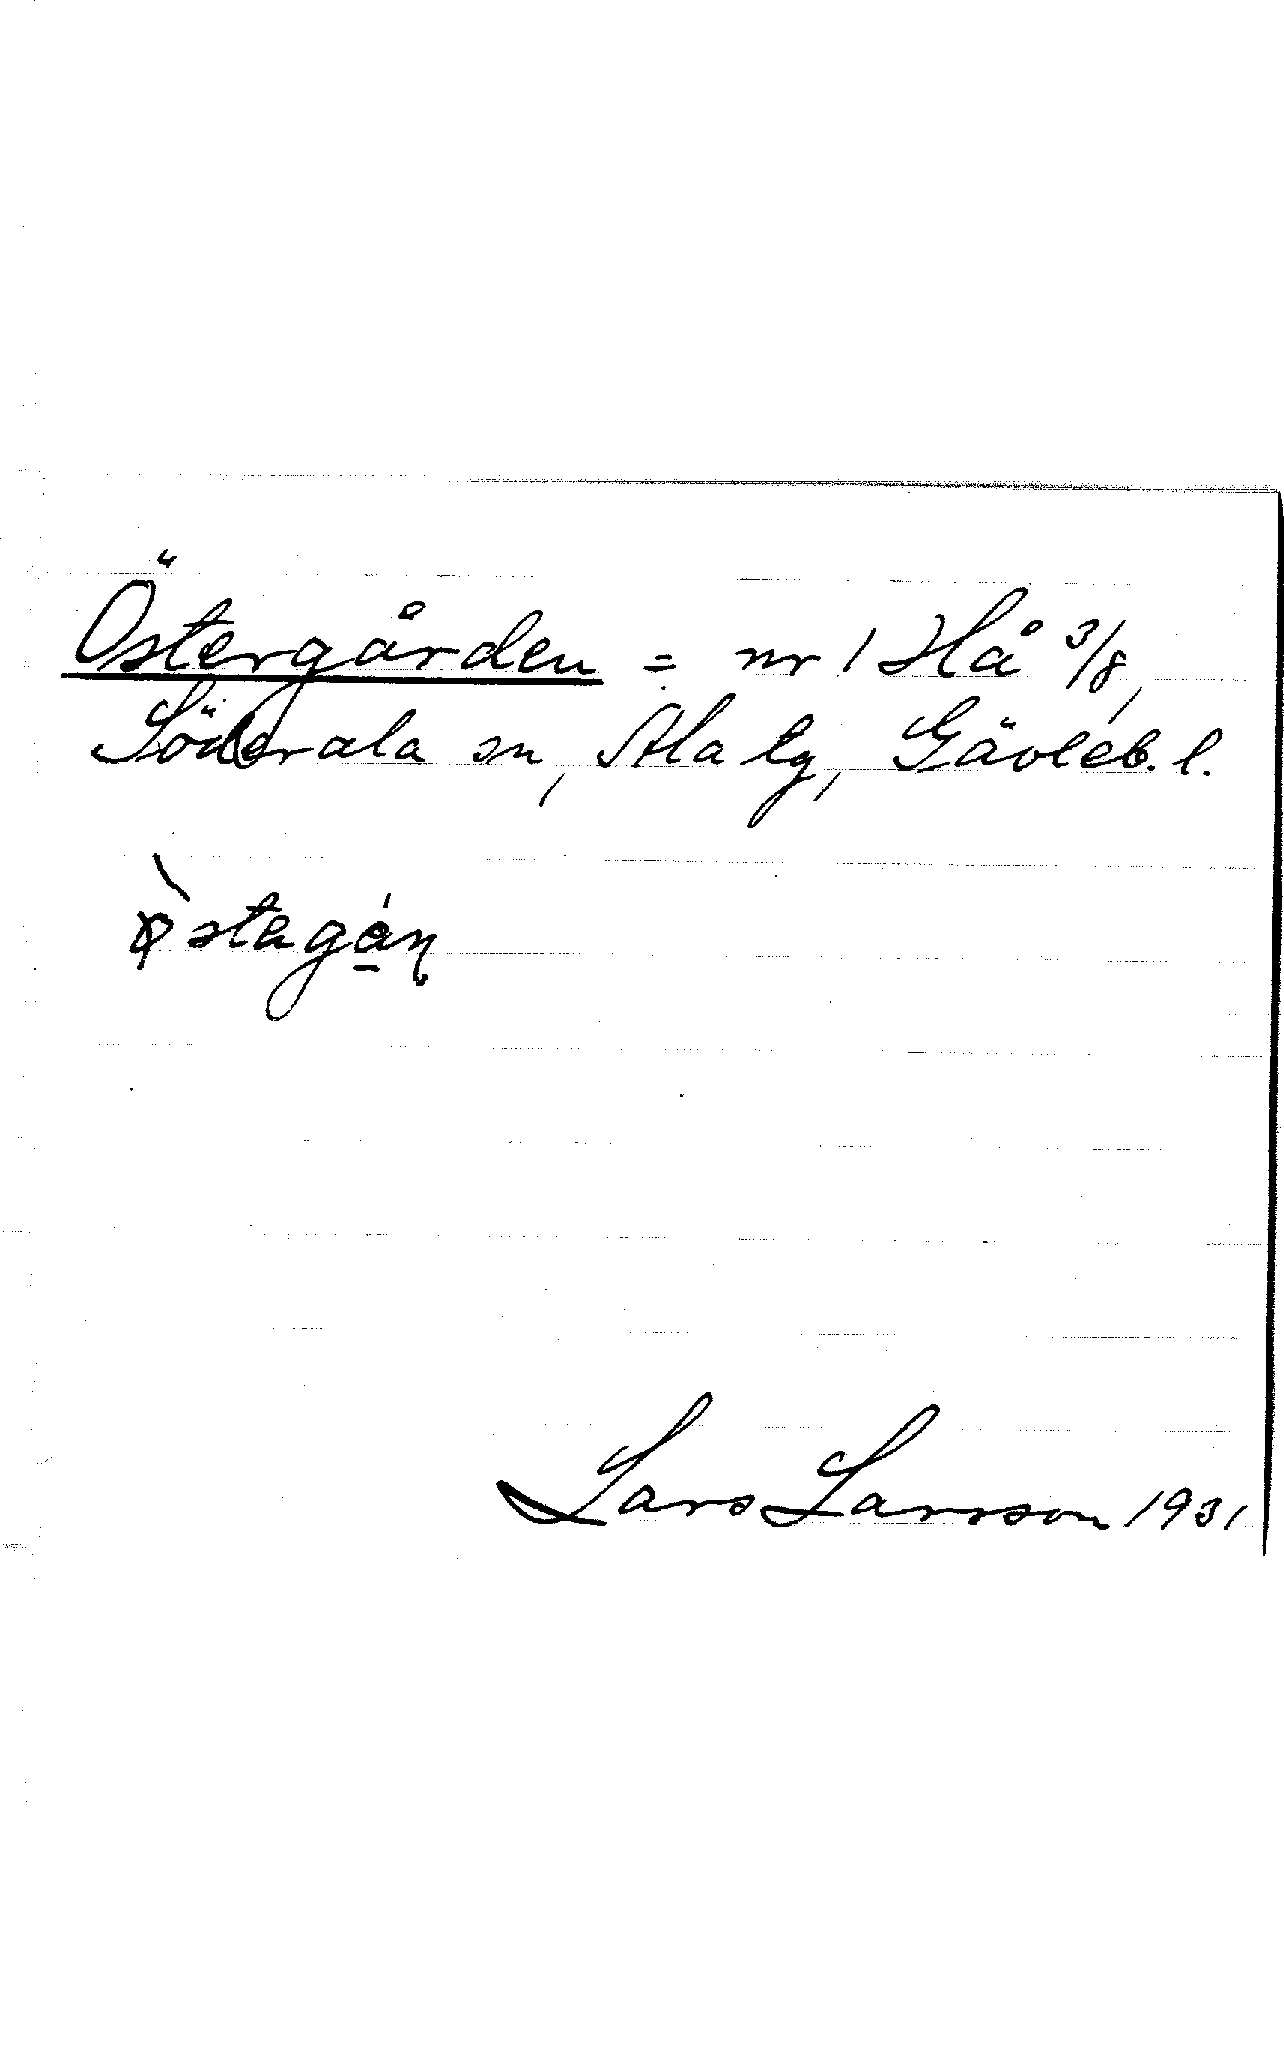 Östergården = nr 1 Hå 3/8,
Söderala sn, Ala lg, Gävleb. l.
stagán
Lars Larsson 1931